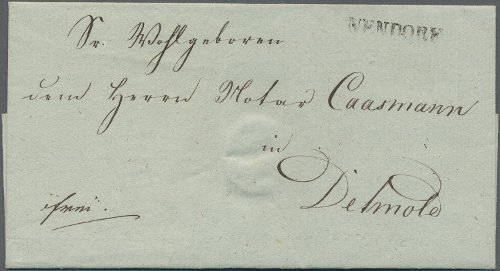 NENDORF
Sr. Wohlgeboren
dem Herrn Notar Caasmann
in
Detmold
frei.